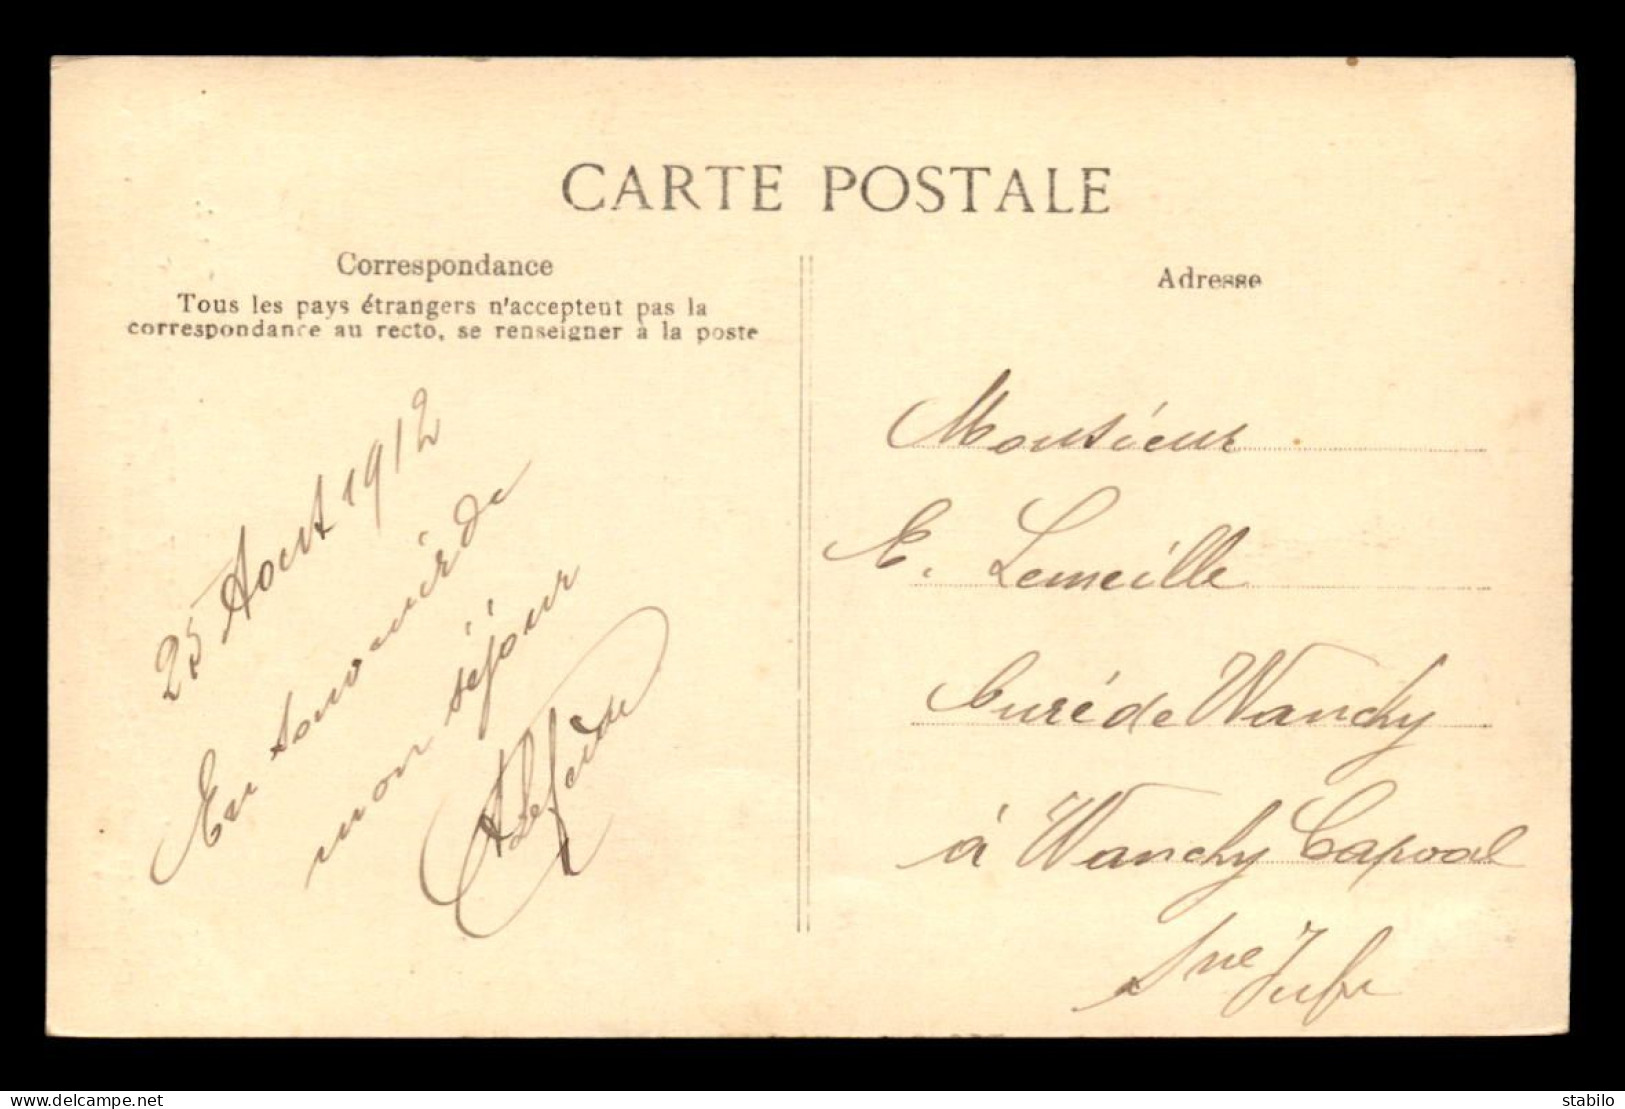 CARTE POSTALE
Correspondance
Tous les pays étrangers n'acceptent pas la
correspondance au recto, se renseigner à la poste
25 Aout 1912
En souvenir de
mon séjour
Adresse
Monsieur
E. Lemeille
Curé de Wanchy
à Wanchy Capval
Sne Infre
delcampe.net
stabilo